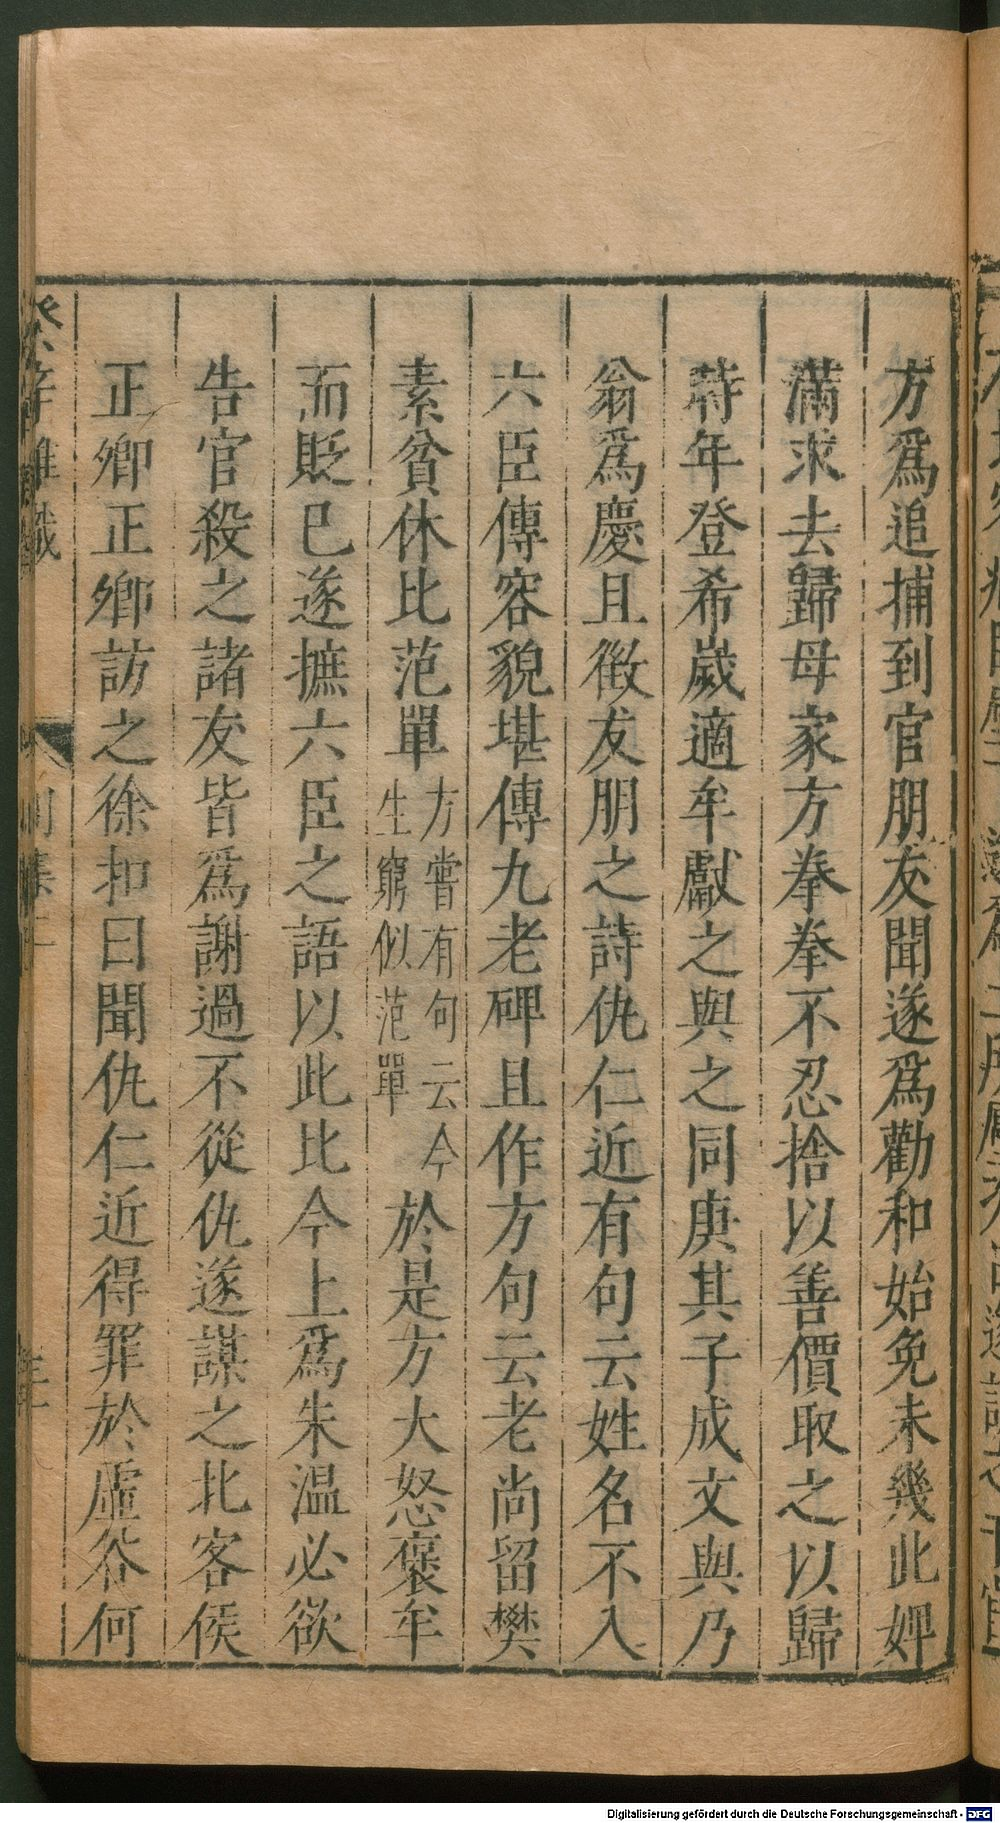 方爲追捕到官朋友聞遂爲勸和始免未幾此婢
滿求去歸母家方拳拳不忍捨以善價取之以歸
時年登希歲適牟獻之與之同庚其子成文與乃
翁爲慶且徵友朋之詩仇仁近有句云姓名不入
六臣傳容貌堪傳九老碑且作方句云老尚留樊
素貧休比范單方嘗有句云今生窮似范單於是方大怒褒牟
而貶已遂摭六臣之語以此比今上爲朱温必欲
告官殺之諸友皆爲謝過不從仇遂謀之北客侯
正卿正卿訪之徐扣曰聞仇仁近得罪於虛谷何
癸辛雜識
別集上
Digitalisierung gefördert durch die Deutsche Forschungsgemeinschaft - DFG